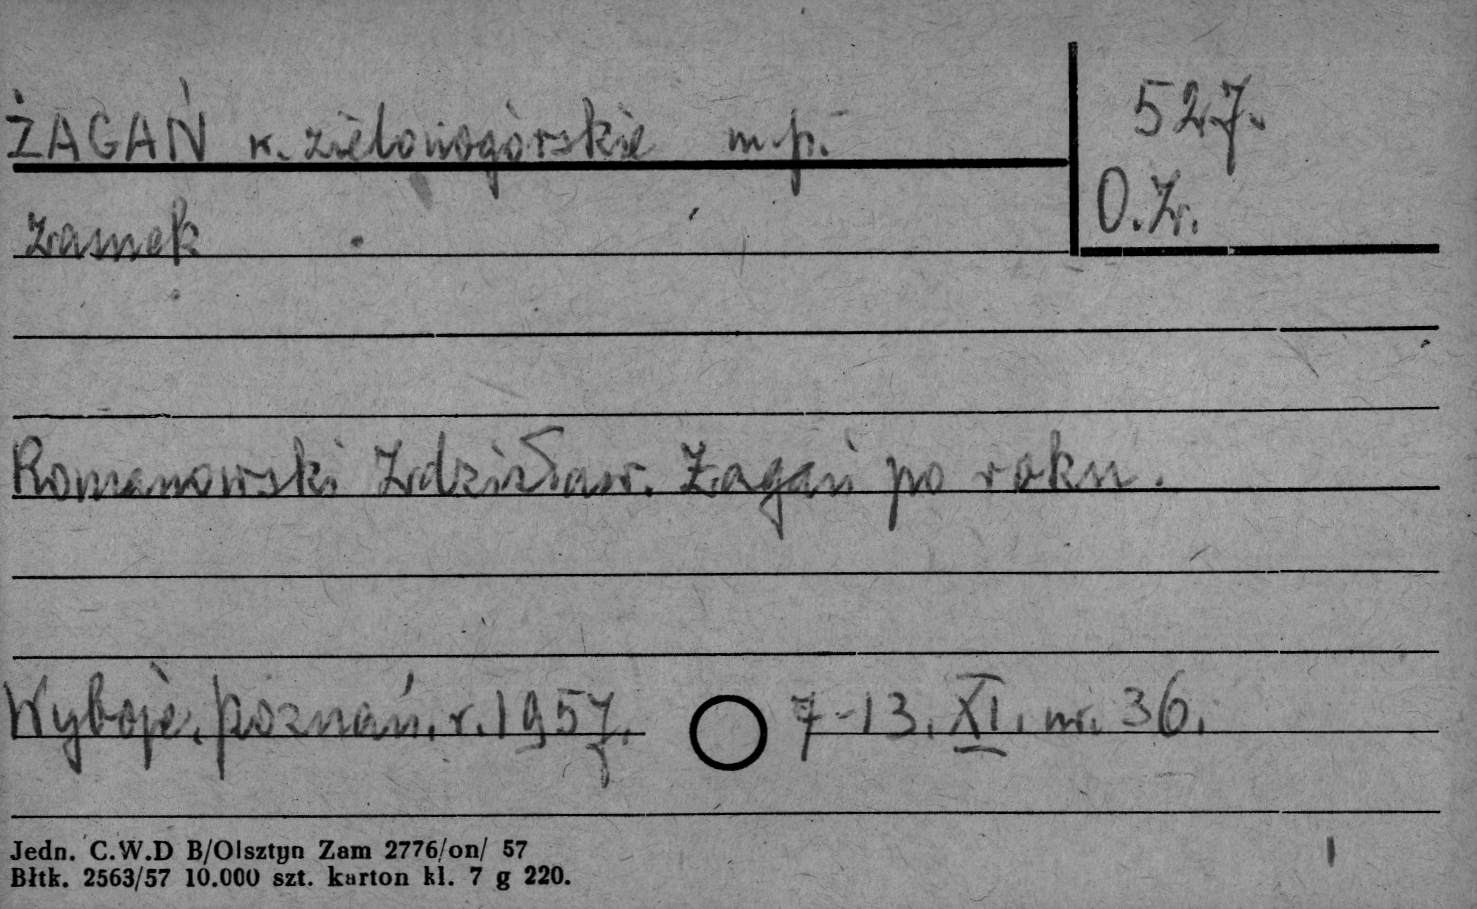 ŻAGAŃ w. zielonogórskie m.p.
527.
O.Z.
zamek
Romanowski Zdzisław. Żagań po roku.
Wyboje. Poznań. r. 1957. 7-13. XI. nr. 36.
Jedn. C.W.D B/Olsztyn Zam 2776/on/ 57
Błtk. 2563/57 10.000 szt. karton kl. 7 g 220.